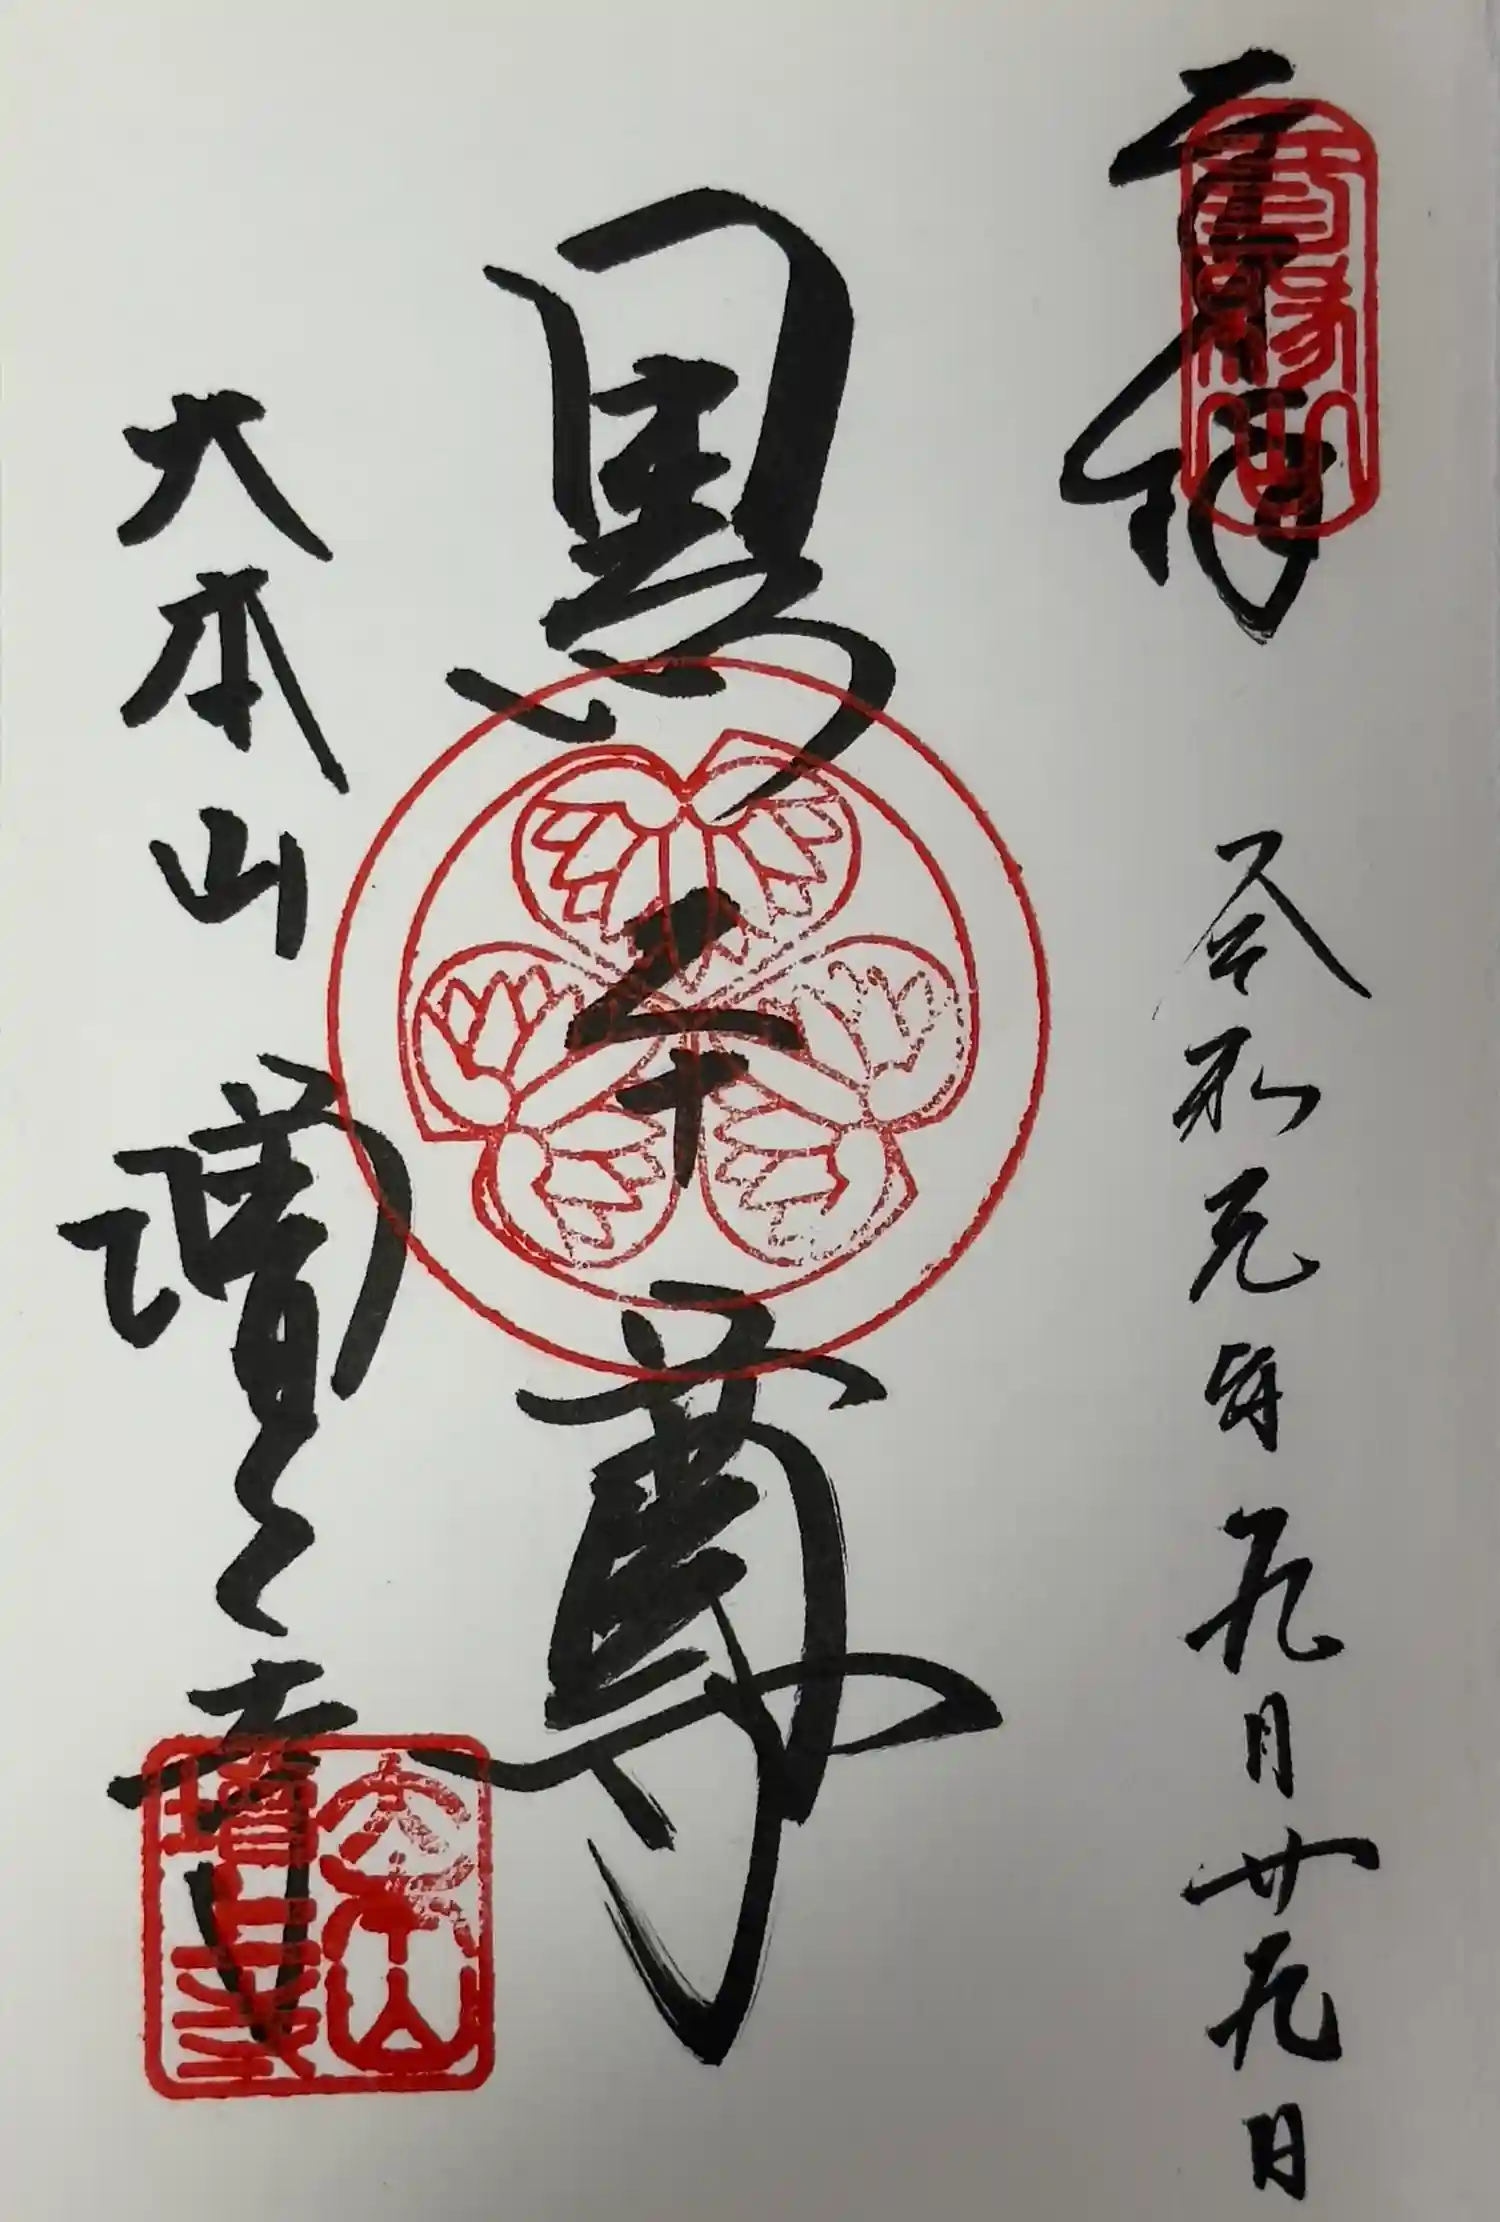 令和元年九月廿九日
黒本尊
大本山
増上寺
大本山
増上寺